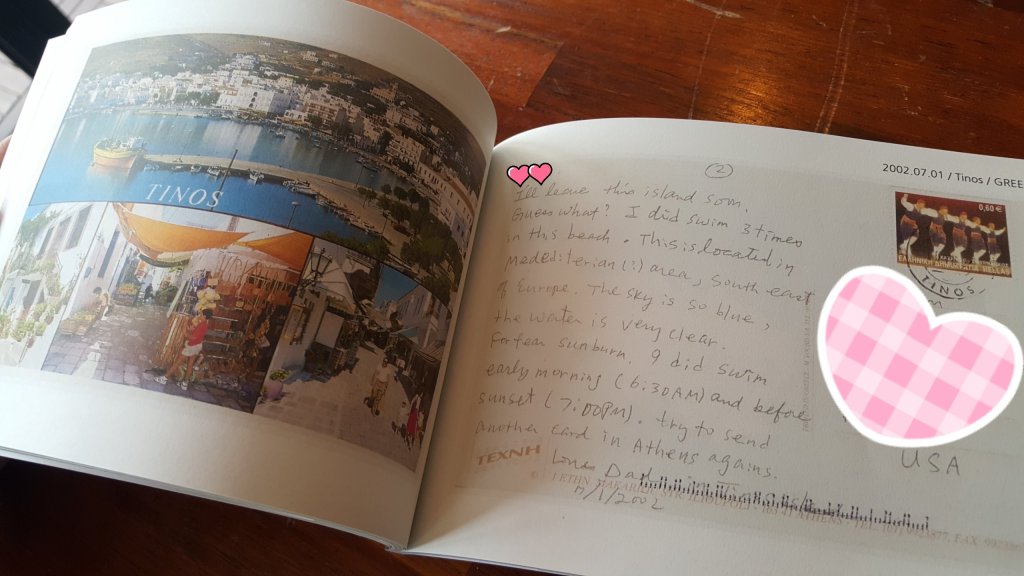 TINOS
②
2002.07.01 / Tinos / GREE
I'll leave this island som.
Guess what? I did swim 3 times
in this beach. This is located in
Medediterian(?) area, South east
of Europe. The sky is so blue,
the water is very clear.
For fear sunburn, I did swim
early morning (6:30AM) and before
sunset (7:00PM). try to send
another card in Athens agains.
Love Dad
7/1/2002
0,60 €
ΕΛΛΗΝΙΚΗ ΔΗΜΟΚΡΑΤΙΑ HELLAS
TINOS
USA
TEXNH